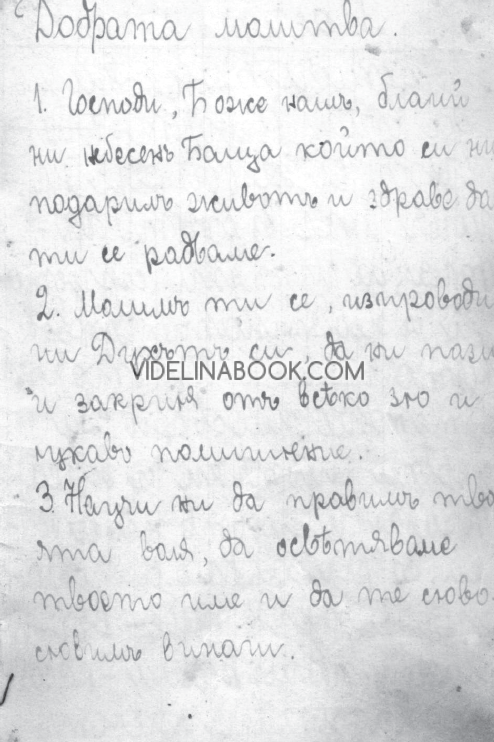 Добрата молитва.
1. Господи, Боже нашъ, благий
ни небесенъ Баща който си ни
подарилъ животъ и здраве да
ти се радваме.
2. Молимъ ти се, изпроводи
ни Духътъ си, да ни пази
VIDELINABOOK.COM
и закриля отъ всѣко зло и
лукаво помишление.
3. Научи ни да правимъ тво
ята воля, да освѣтяваме
твоето име и да те слово-
словимъ винаги.